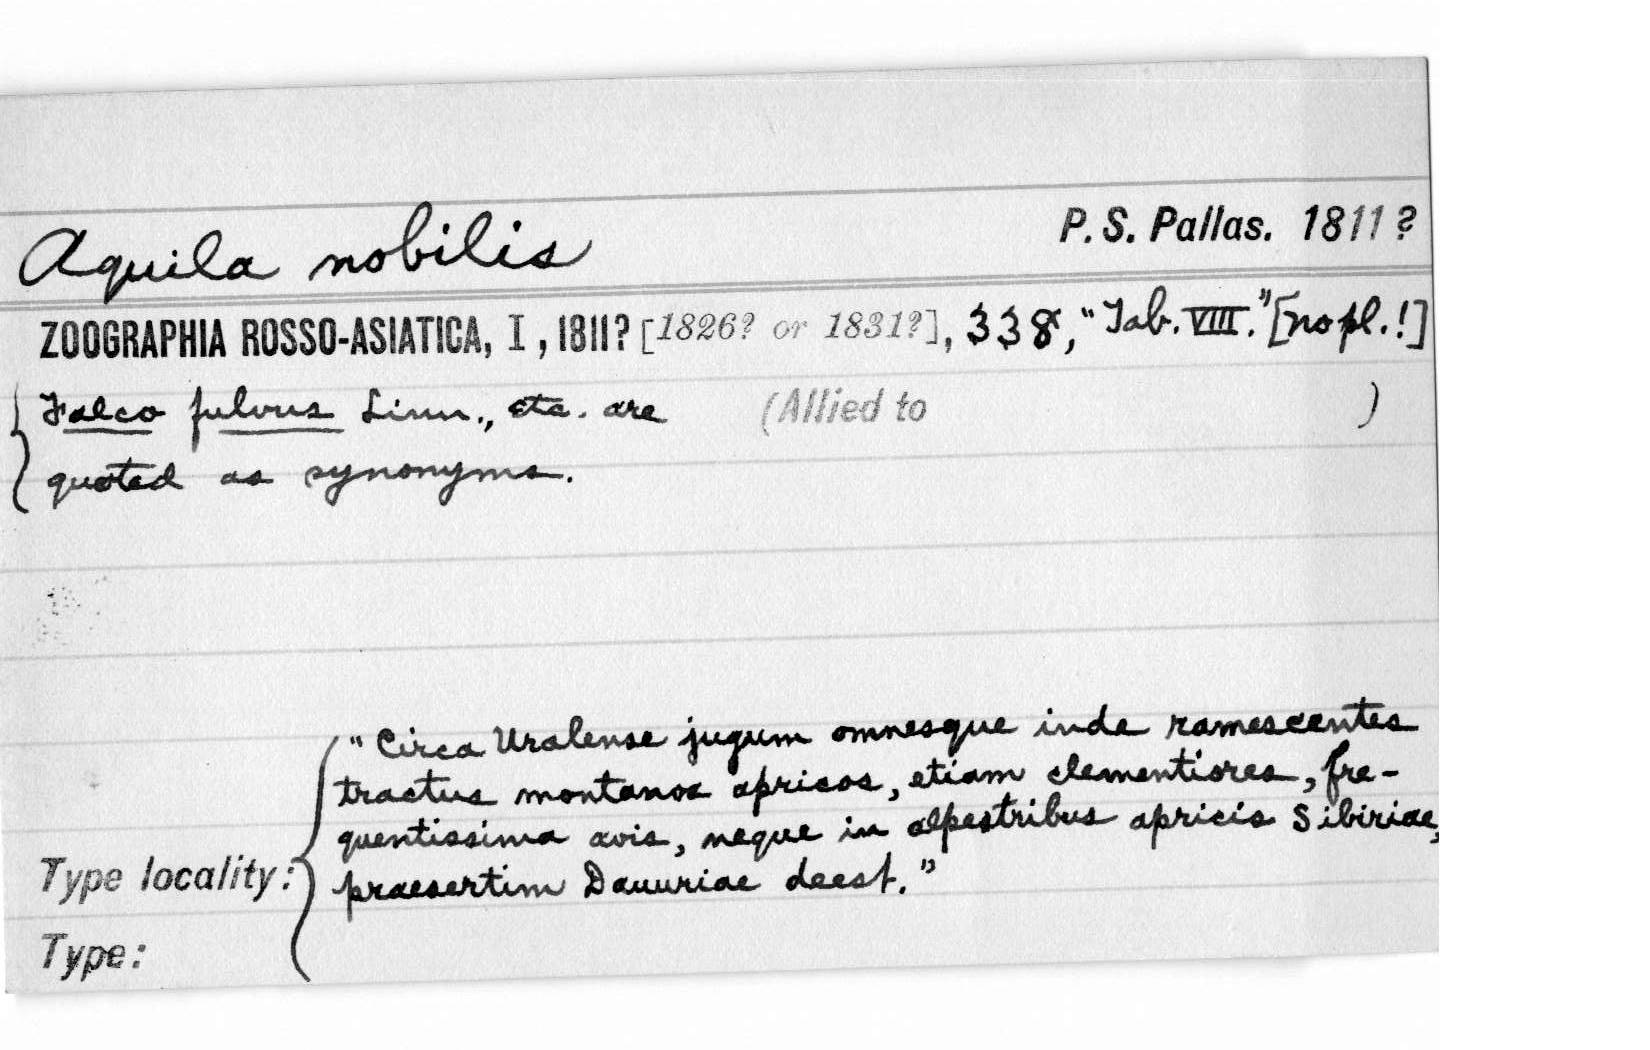 Aquila nobilis P. S. Pallas. 1811?
ZOOGRAPHIA ROSSO-ASIATICA, I, 1811? [1826? or 1831?], 338, "Tab. VIII." [no pl.!]
Falco fulvus Linn., etc. are (Allied to )
quoted as synonyms.
"Circa Uralense jugum omnesque inde ramescentes
tractus montanos apricos, etiam clementiores, fre-
quentissima avis, neque in alpestribus apricis Sibiriae,
Type locality: praesertim Dauuriae deest."
Type: